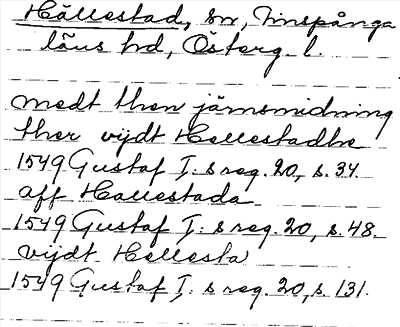 Hällestad, sn, Finspånga
läns hd, Österg. l.
medt then järnsmidning
ther vijdt Hellestadhe
1549 Gustaf I: s reg. 20, s. 34.
aff Hallestada
1549 Gustaf I: s reg. 20, s. 48.
vijdt Hellesta
1549 Gustaf I: s reg. 20, s. 131.